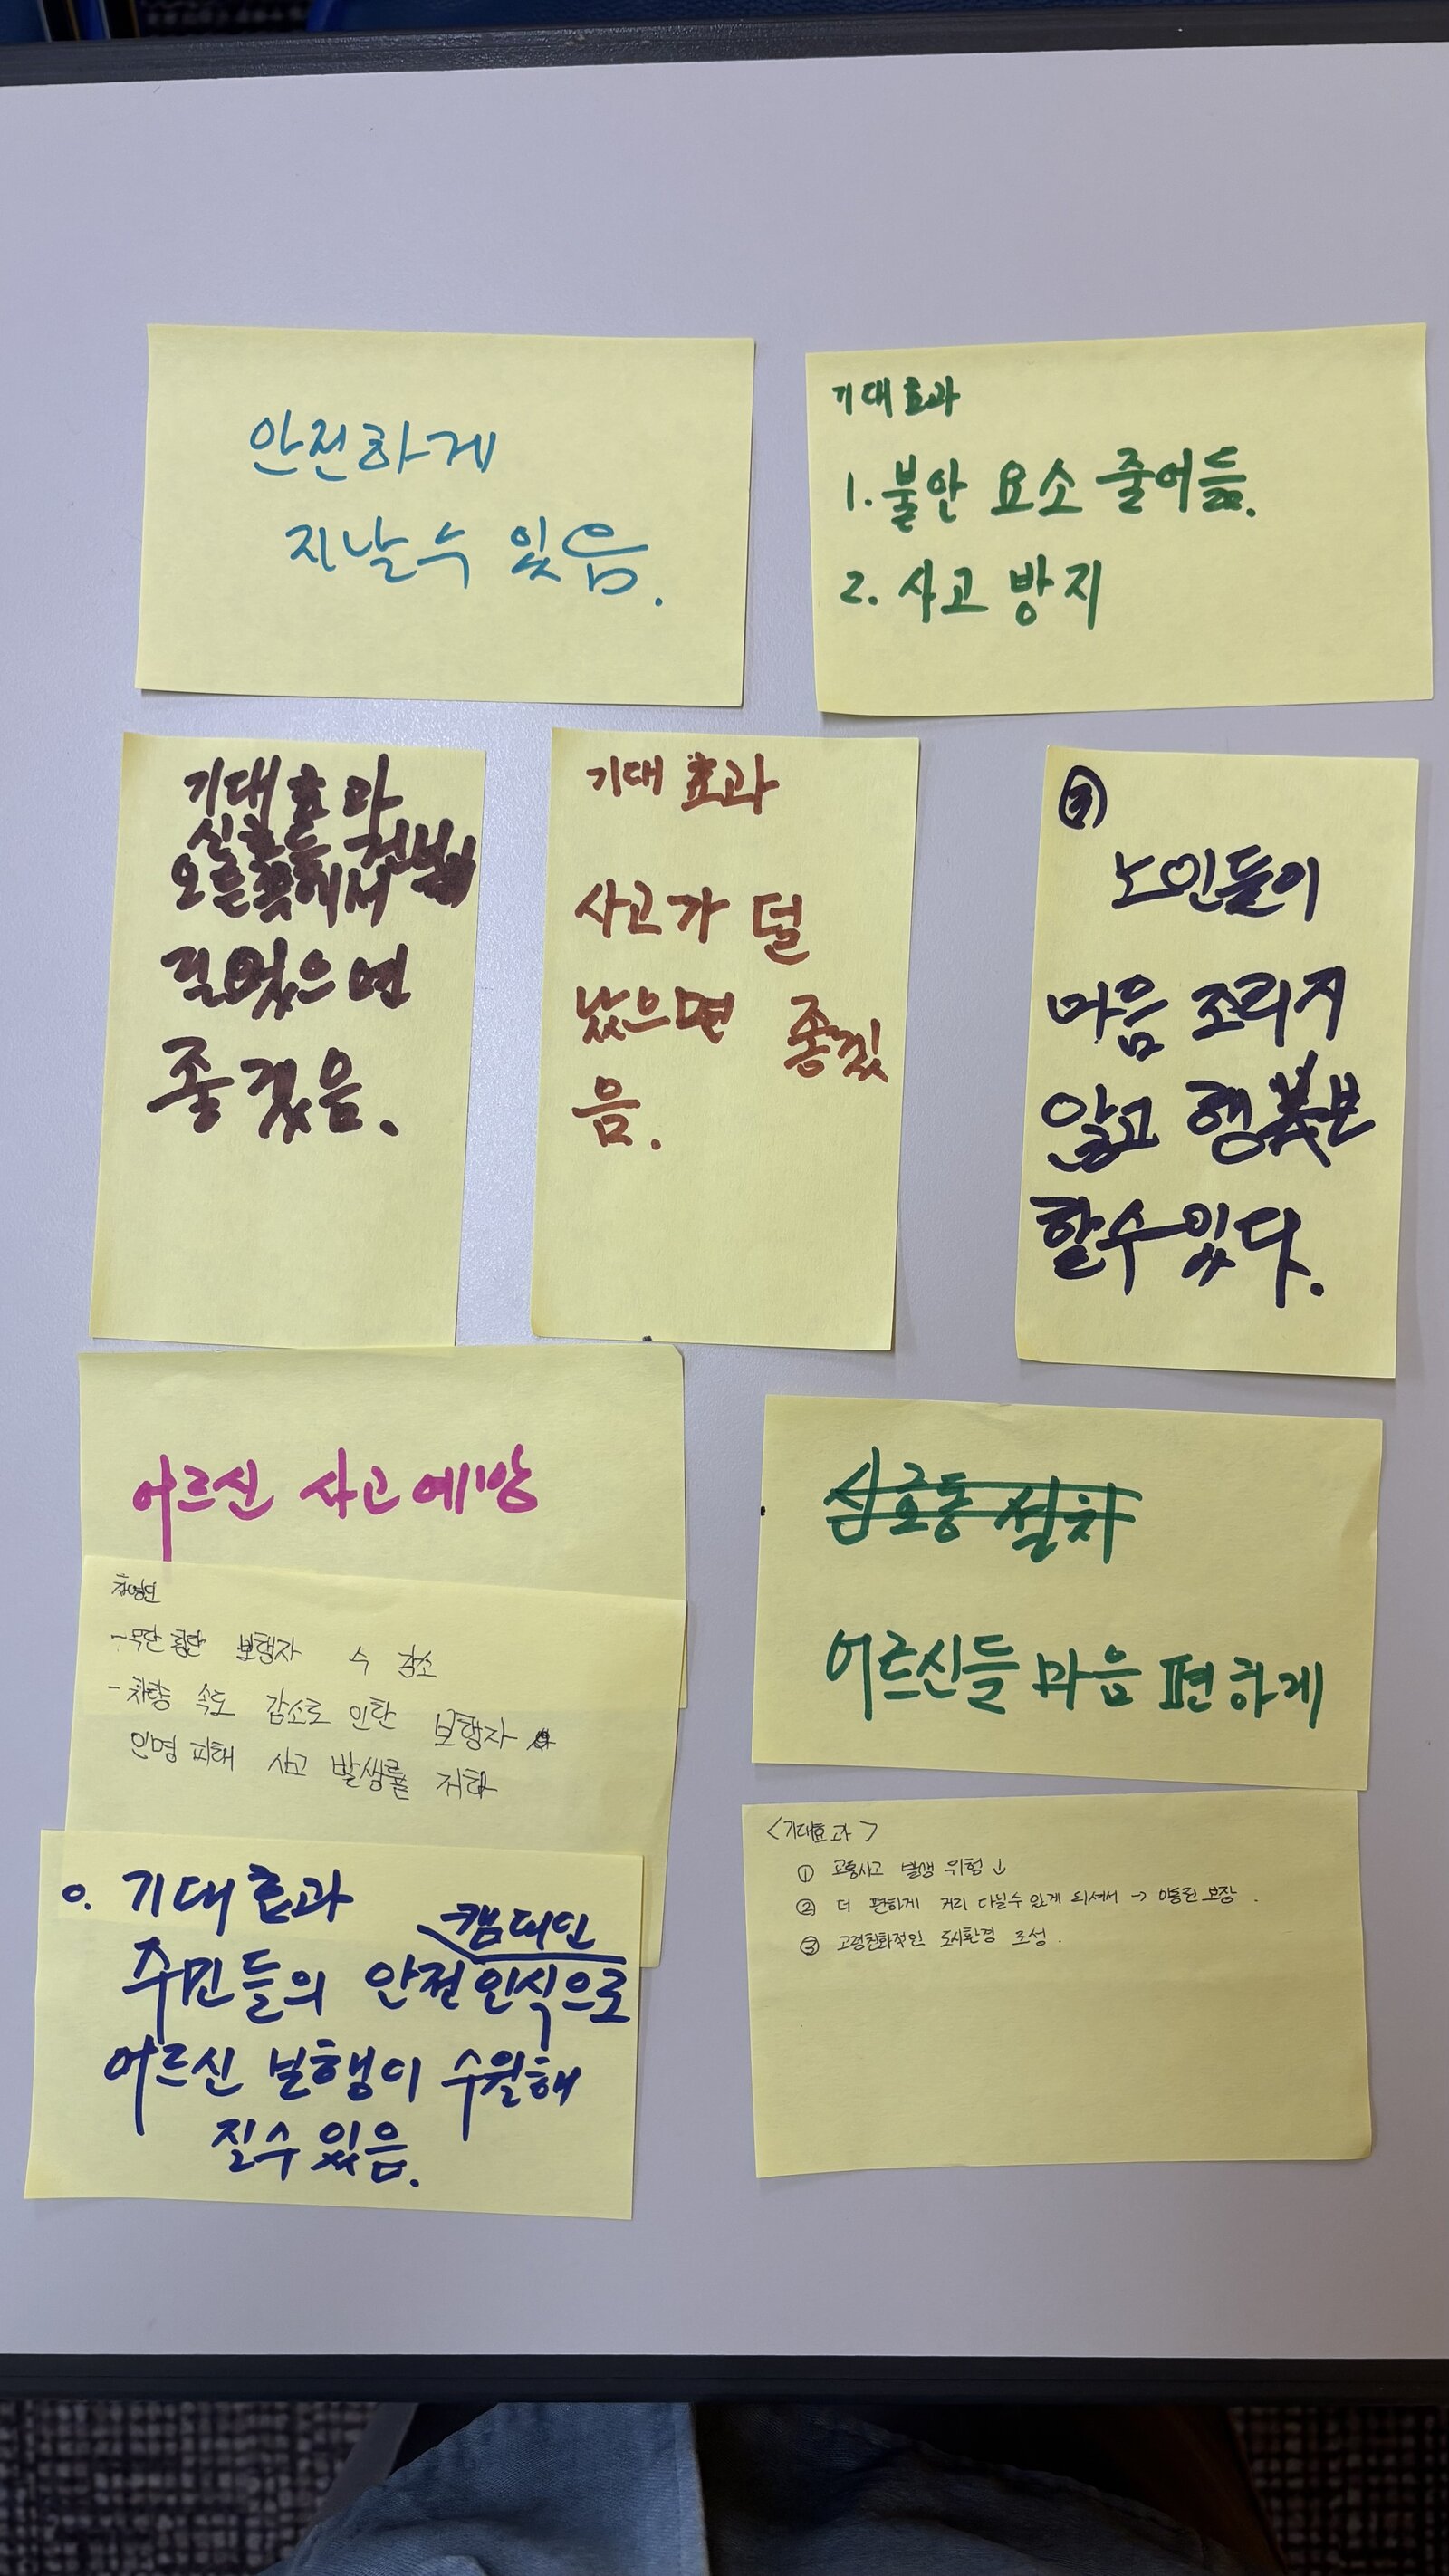 안전하게
지날수 있음.
기대효과
1. 불안 요소 줄어듦.
2. 사고 방지
기대효과
신호등
오른쪽에서
길었으면
좋겠음.
기대 효과
사고가 덜
났으면 좋겠
음.
③
노인들이
마음 조리지
않고 행보
할수있다.
어르신 사고예방
- 무단횡단 보행자 수 감소
- 차량 속도 감소로 인한 보행자
인명피해 사고 발생률 저하
신호등 설치
어르신들 마음 편하게
o. 기대효과
캠페인
주민들의 안전인식으로
어르신 보행이 수월해
질수 있음.
<기대효과>
① 교통사고 발생 위험 ↓
② 더 편하게 거리 다닐수 있게 되셔서 → 이동권 보장.
③ 고령친화적인 도시환경 조성.